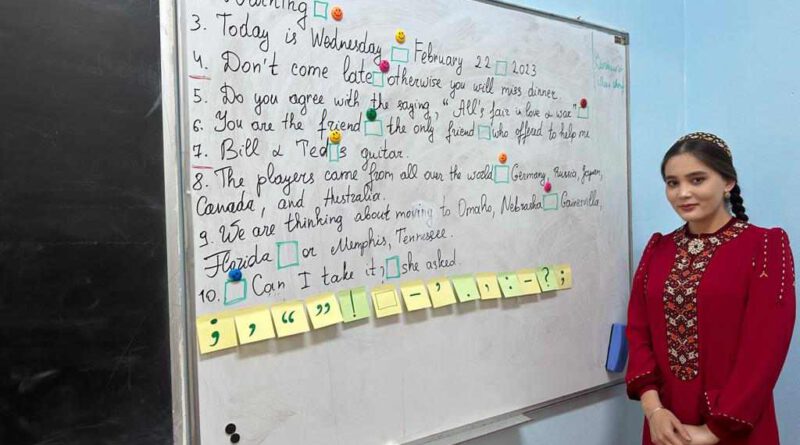 3. Today is Wednesday □ February 22 □ 2023
4. Don't come late □ otherwise you will miss dinner.
5. Do you agree with the saying, "All's fair in love & war" □
6. You are the friend □ the only friend □ who offered to help me
7. Bill & Ted □ s guitar.
8. The players came from all over the world □ Germany, Russia, Japan,
Canada, and Australia.
9. We are thinking about moving to Omaho, Nebraska □ Gainsvilla,
Florida □ or Memphis, Tennessee.
10. □ Can I take it, □ she asked.
; , “ ” ! □ - ’ . , : - ? ;